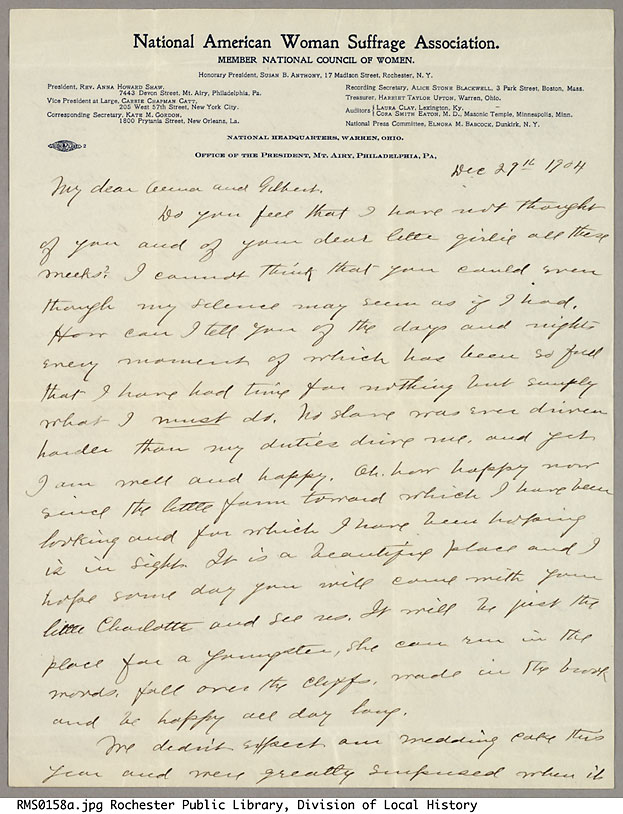 National American Woman Suffrage Association.
MEMBER NATIONAL COUNCIL OF WOMEN.
Honorary President, SUSAN B. ANTHONY, 17 Madison Street, Rochester, N. Y.
President, REV. ANNA HOWARD SHAW,
7443 Devon Street, Mt. Airy, Philadelphia, Pa.
Vice President at Large, CARRIE CHAPMAN CATT,
205 West 57th Street, New York City.
Corresponding Secretary, KATE M. GORDON,
1800 Prytania Street, New Orleans, La.
Recording Secretary, ALICE STONE BLACKWELL, 3 Park Street, Boston, Mass.
Treasurer, HARRIET TAYLOR UPTON, Warren, Ohio.
Auditors { LAURA CLAY, Lexington, Ky.
CORA SMITH EATON, M. D., Masonic Temple, Minneapolis, Minn.
National Press Committee, ELNORA M. BABCOCK, Dunkirk, N. Y.
NATIONAL HEADQUARTERS, WARREN, OHIO.
OFFICE OF THE PRESIDENT, MT. AIRY, PHILADELPHIA, PA,
2
Dec 29th 1904
My dear and Gilbert.
Do you feel that I have not thought
of you and of your dear little girlie all these
weeks? I cannot think that you could even
though my silence may seem as if I had.
How can I tell you of the days and nights
every moment of which has been so full
that I have had time for nothing but simply
what I must do. No slave was ever driven
harder than my duties drive me. and yet
I am well and happy. Oh. how happy now
since the little farm toward which I have been
looking and for which I have been hoping
is in sight. It is a beautiful place and I
hope some day you will come with your
little Charlotte and see us. It will be just the
place for a youngster, she can run in the
woods. fall over the cliffs. wade in the brook
and be happy all day long.
We didn't expect our wedding cake this
year and were greatly surprised when it
RMS0158a.jpg Rochester Public Library, Division of Local History